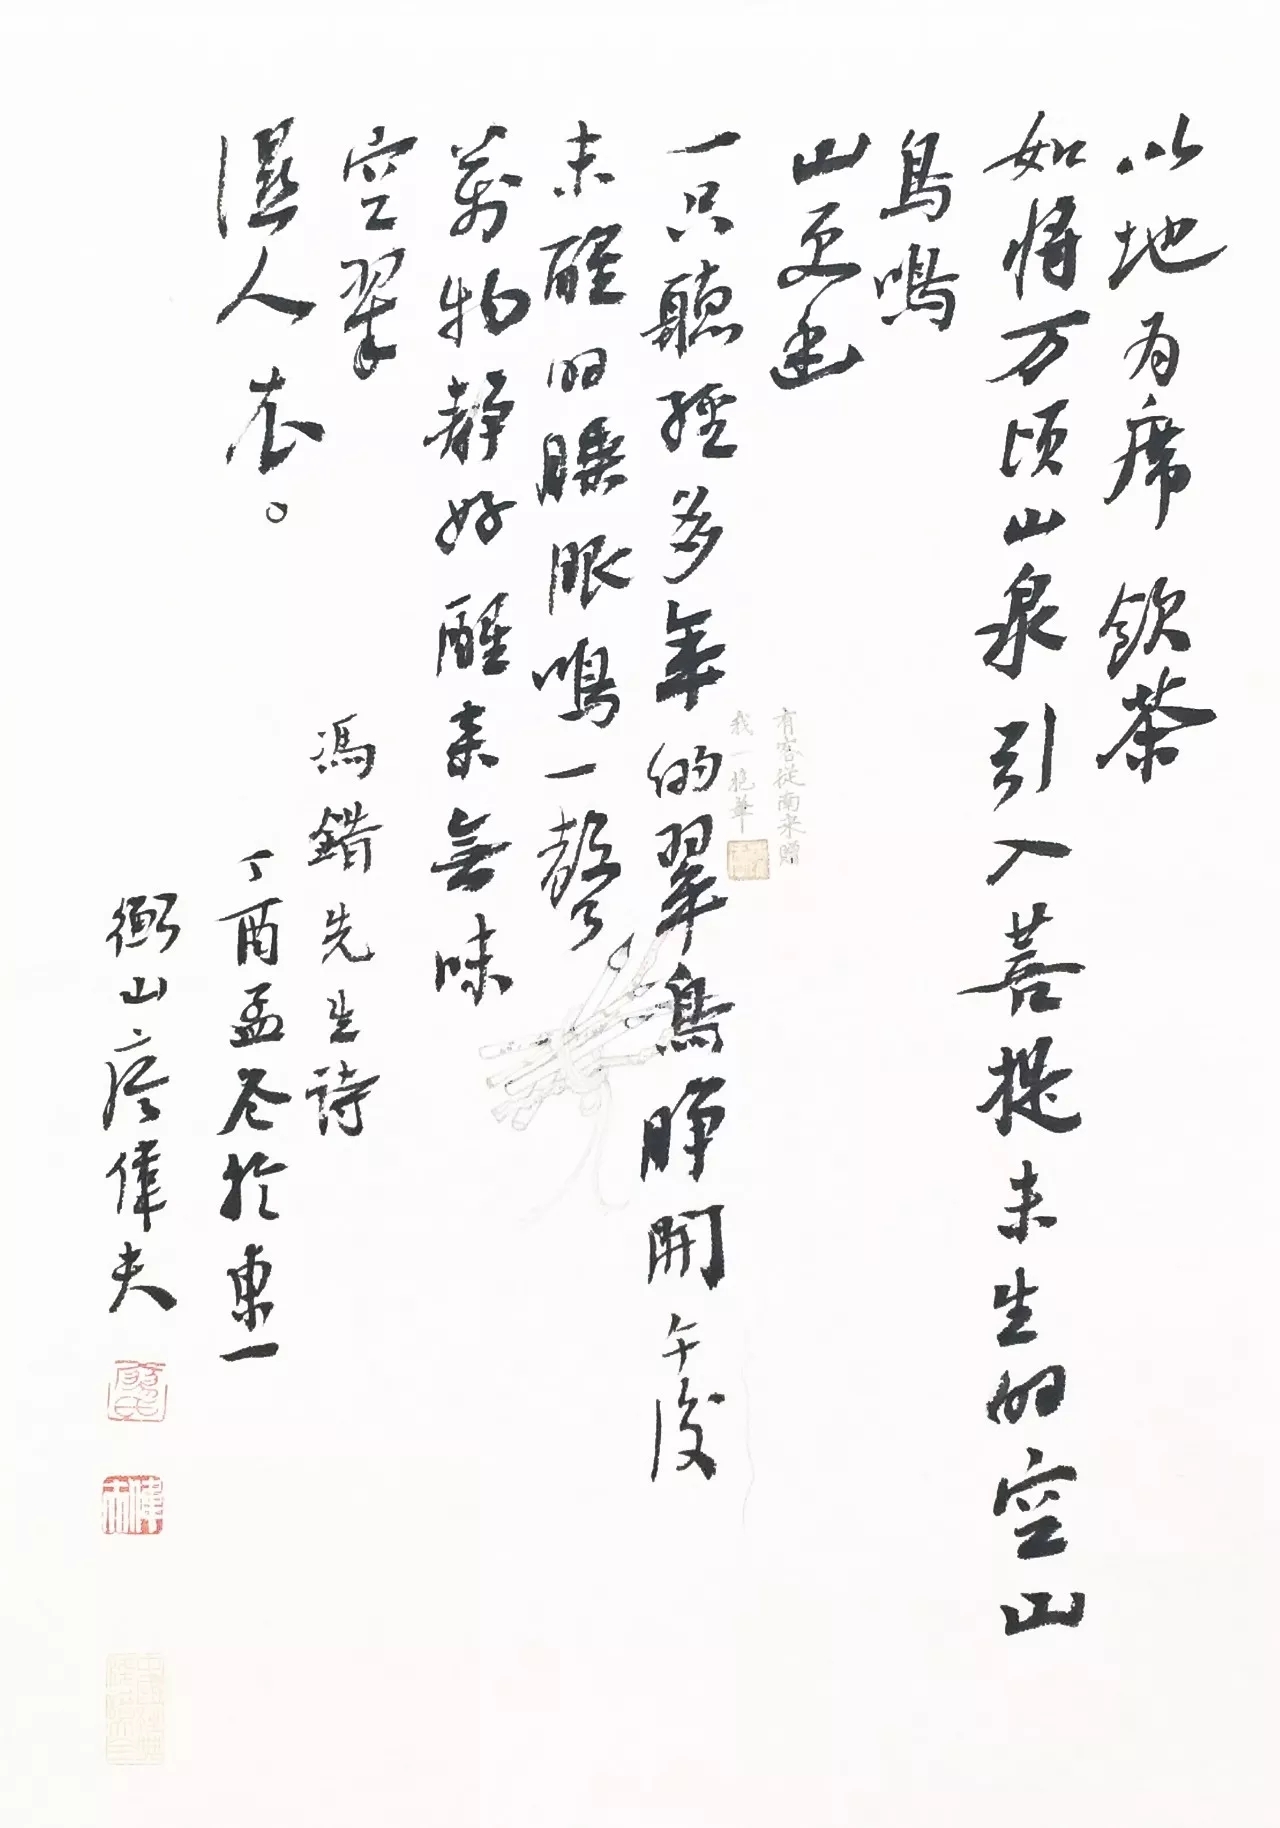 以地为席 飲茶
如将万顷山泉引入菩提未生的空山
鳥鳴
山更幽
有客從南来贈
我一把筆
一只聽經多年的翠鳥睁開午後
未醒的睡眼鳴一聲
萬物靜好醒来無味
空翠
濕人衣。
馮錯先生詩
丁酉孟冬於東一
衡山廖偉夫
偉夫